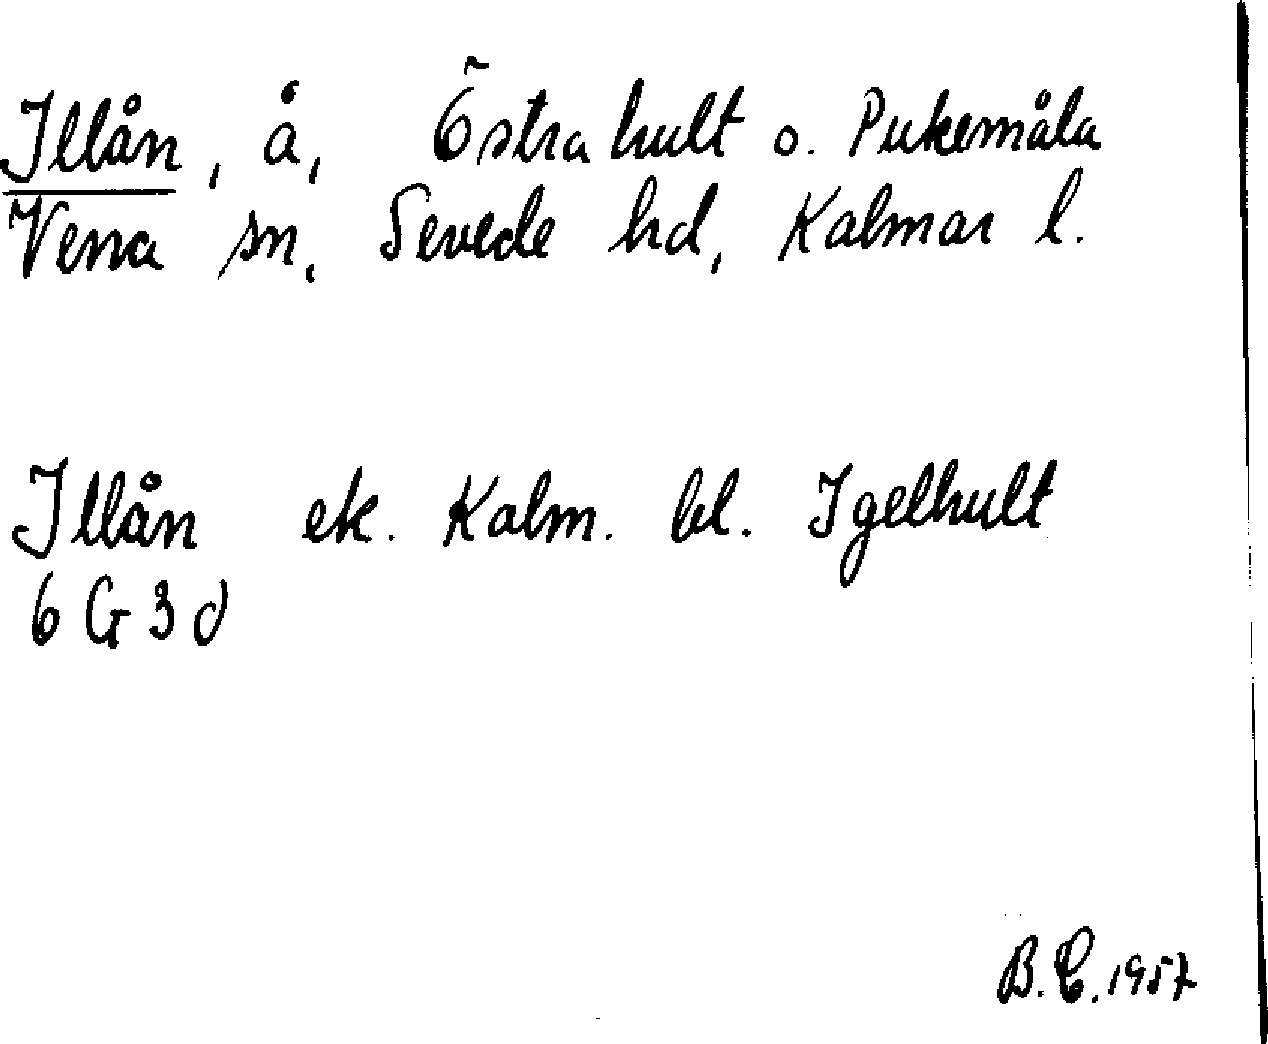 Illån, å, Östrahult o. Pukemåla
Vena sn, Sevede hd, Kalmar l.
Illån ek. Kalm. bl. Igelhult
6 G 3 d
B.C. 1957